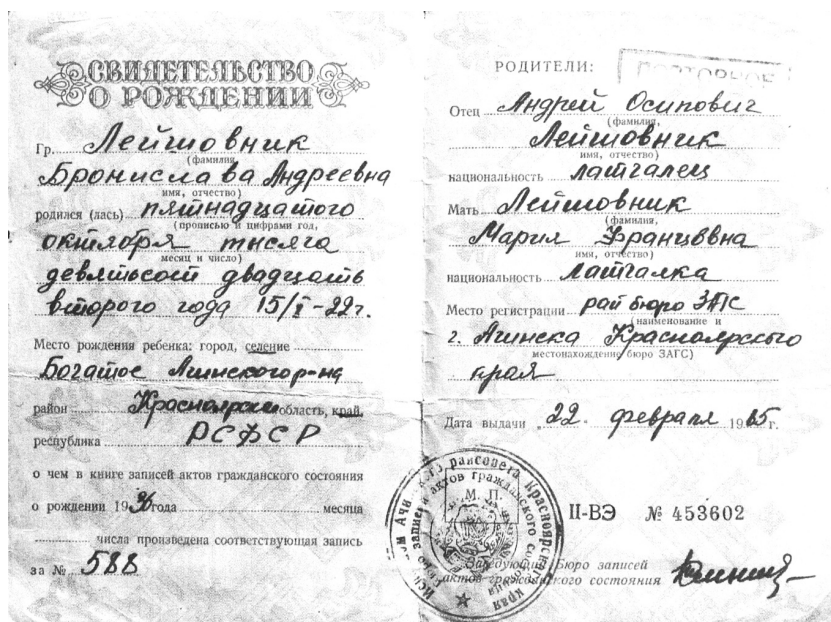 СВИДЕТЕЛЬСТВО
О РОЖДЕНИИ
Гр. Лейшовник
(фамилия,
Бронислава Андреевна
имя, отчество)
родился (лась) пятнадцатого
(прописью и цифрами год,
октября тысяча
месяц и число)
девятьсот двадцать
второго года 15/I-22г.
Место рождения ребенка: город, селение
Богатое Ачинского р-на
район Красноярский область, край,
республика РСФСР
о чем в книге записей актов гражданского состояния
о рождении 19 года месяца
числа произведена соответствующая запись
за № 588
РОДИТЕЛИ:
ПОВТОРНОЕ
Отец Андрей Осипович
(фамилия,
Лейшовник
имя, отчество)
национальность латгалец
Мать Лейшовник
(фамилия,
Мария Францввна
имя, отчество)
национальность латгалка
Место регистрации рай бюро ЗАГС
(наименование и
г. Ачинска Красноярского
местонахождение бюро ЗАГС)
края
Дата выдачи „22" февраля 1965г.
М. П.
II-ВЭ № 453602
Заведующий Бюро записей
актов гражданского состояния